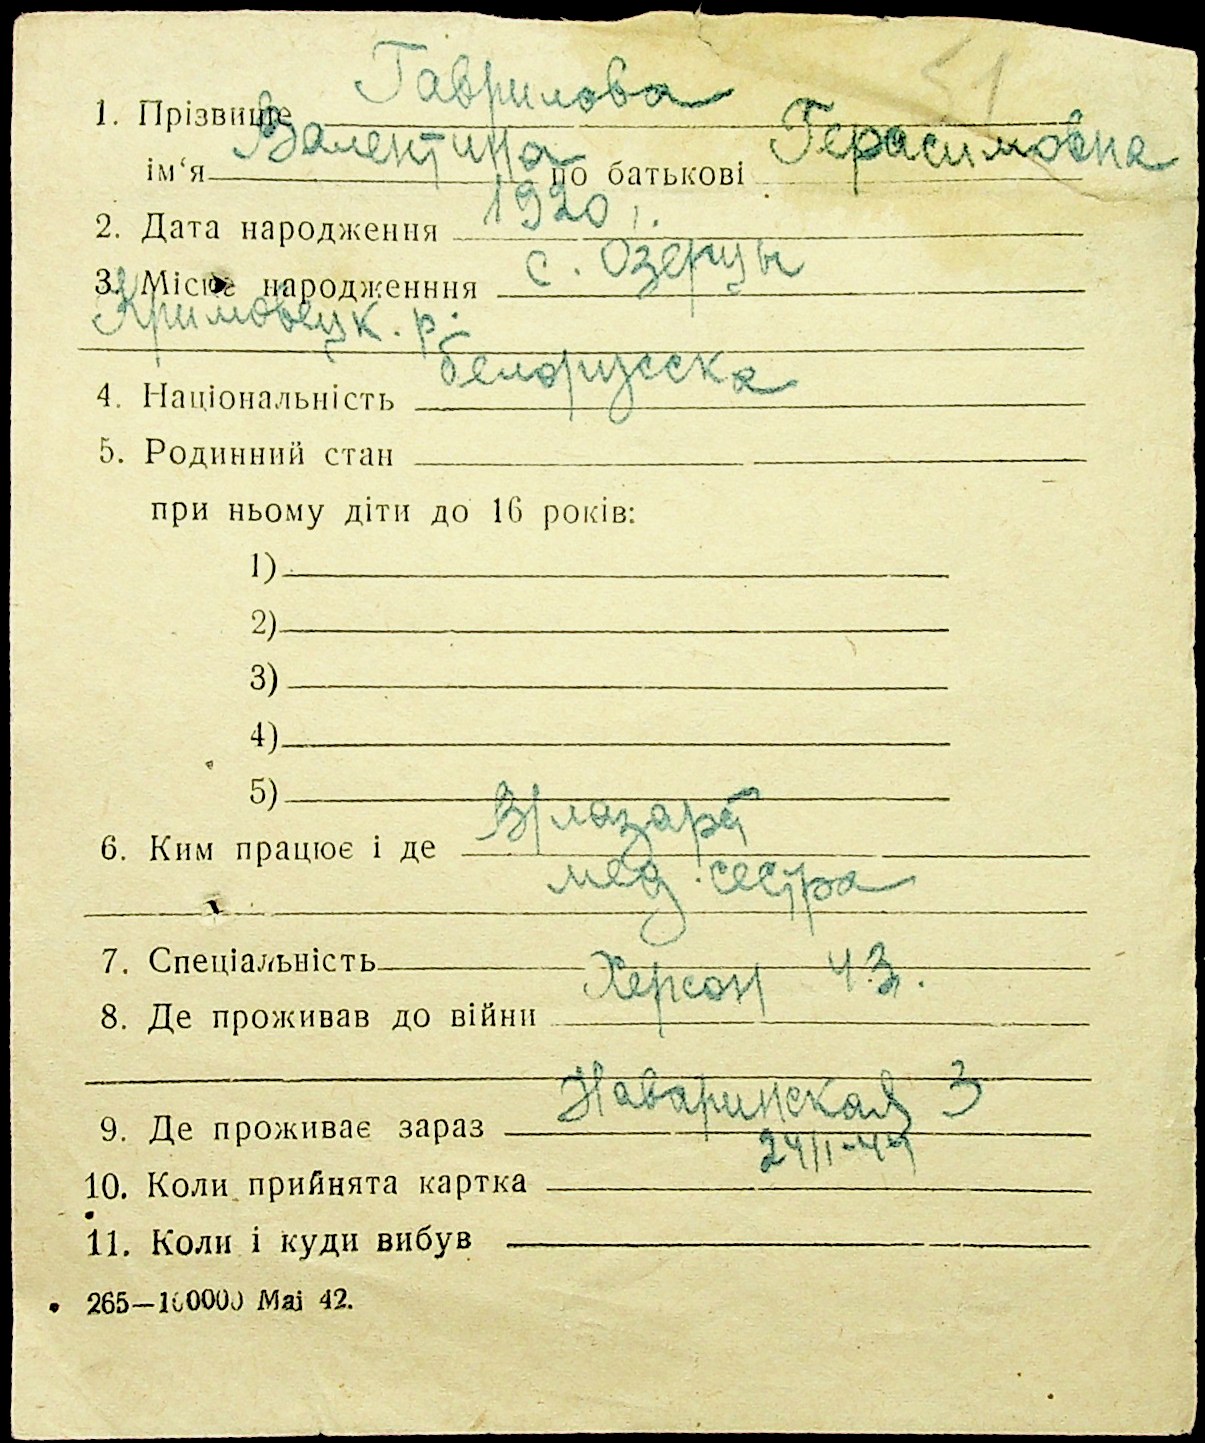 51
Гаврилова
1. Прізвище
Валентина Герасимовна
ім‘я по батькові
1920 г.
2. Дата народження
с. Озерцы
3. Місце народженння
Кримовецк. р.
белорусска
4. Національність
5. Родинний стан
при ньому діти до 16 років:
1)
2)
3)
4)
5)
В лазарет
6. Ким працює і де
мед. сестра
7. Спеціальність
Херсон ч.з.
8. Де проживав до війни
Наваринская 3
9. Де проживає зараз
24/II-44
10. Коли прийнята картка
11. Коли і куди вибув
265—100000 Mai 42.